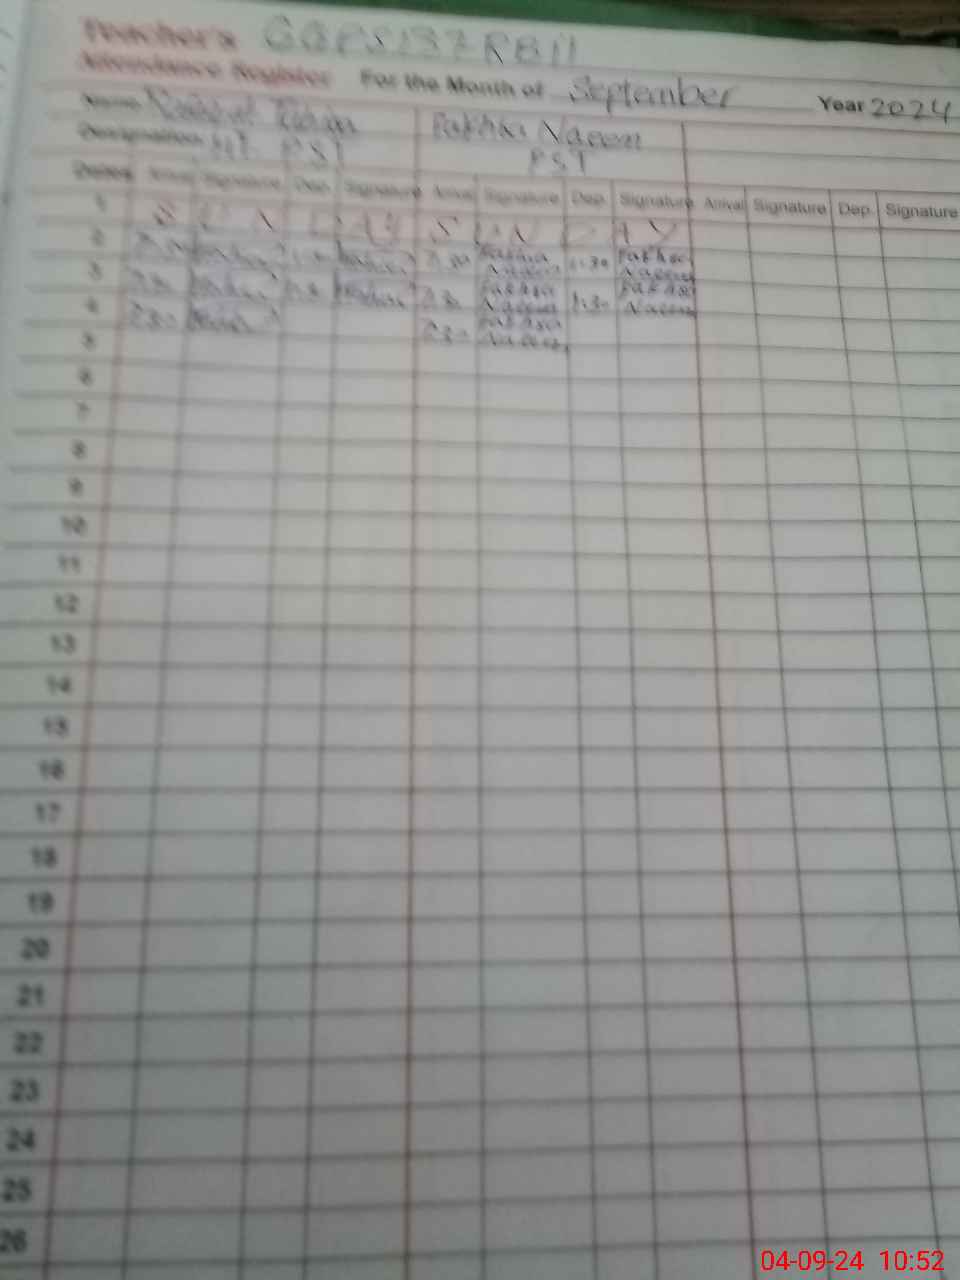 Teacher's GGPS 137 RB II
Attendance Register For the Month of September Year 2024
Name Fakhra Naeem
Designation HT PST PST
Dates Arrival Signature Dep. Signature Arrival Signature Dep. Signature Arrival Signature Dep. Signature
1 S U N D A Y S U N D A Y
2 7:30 1:30 7:30 Fakhra Naeem 1:30 Fakhra Naeem
3 7:30 1:30 7:30 Fakhra Naeem 1:30 Fakhra Naeem
4 7:30 7:30 Fakhra Naeem
5
6
7
8
9
10
11
12
13
14
15
16
17
18
19
20
21
22
23
24
25
26
04-09-24 10:52